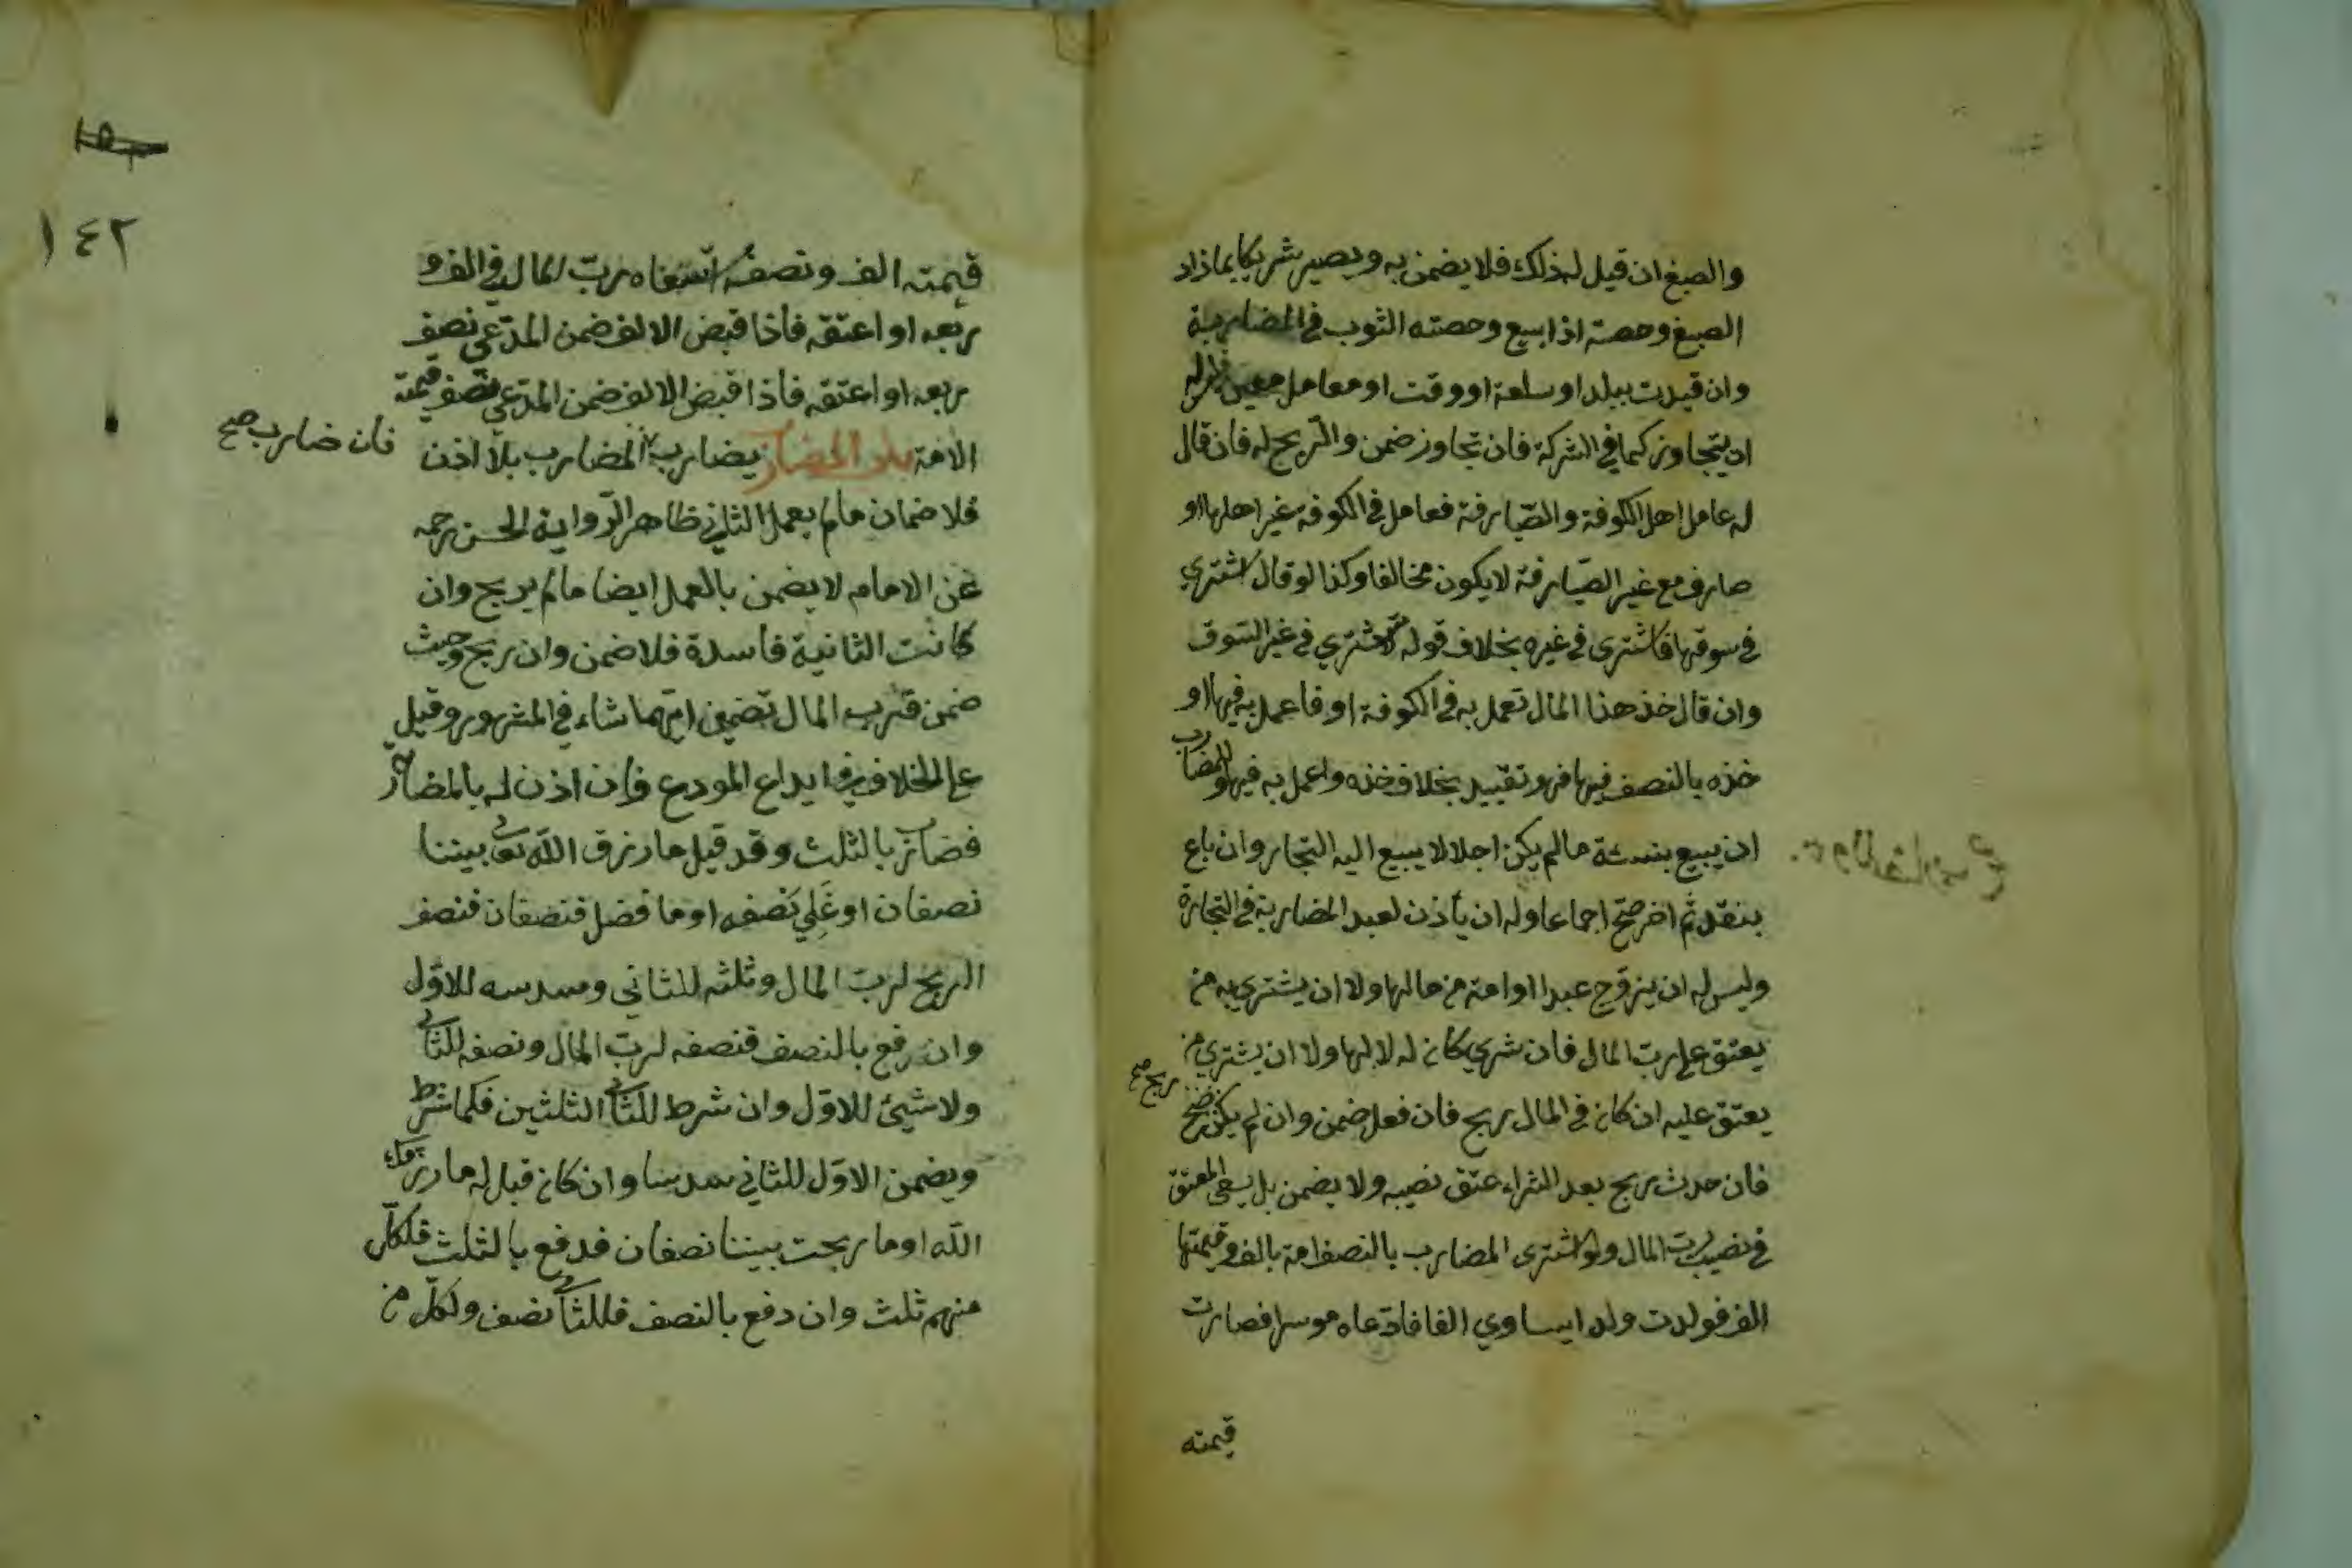 والصبغ ان قيل له ذلك فلا يضمن به ويصير شريكا بما زاد
الصبغ وحصة اذا بيع وحصته الثوب في المضاربة
وان قيدت ببلد او سلعة او وقت او معامل معين فليس له
ان يتجاوز كما في الشركة فان تجاوز ضمن والربح له فان قال
له عامل اهل الكوفة والصيارفة فعامل في الكوفة غير اهلها او
صارف مع غير الصيارفة لا يكون مخالفا وكذا لو قال اشتري
في سوقها فاشترى في غيره بخلاف قوله لا تشتري في غير السوق
وان قال خذ هذا المال تعمل به في الكوفة او فاعمل به فيها او
خذه بالنصف فيها فهو تقييد بخلاف خذه واعمل به فيها وللمضارب
ان يبيع بنسئة مالم يكن اجلا لا يبيع اليه التجار وان باع
بنقد ثم اخر صح اجماعا وله ان يأذن لعبد المضاربة في التجارة
وليس له ان يزوج عبدا او امة من مالها ولا ان يشتري به من
يعتق على رب المال فان شرى كان له لا لها ولا ان يشتري من
يعتق عليه ان كان في المال ربح فان فعل ضمن وان لم يكن ربح صح
ربح صح
فان حدث ربح بعد الشراء عتق نصيبه ولا يضمن بل يسعى المعتق
في نصيب رب المال ولو اشترى المضارب بالنصف امة بالف وقيمتها
الف فولدت ولدا يساوي الفا فادعاه موسرا فصارت
قيمته
١٤٢
قيمته الف ونصفه استسعاه رب المال في الف و
ربعه او اعتقه فاذا قبض الالف ضمن المدعي نصف
ربعه او اعتقه فاذا قبض الالف ضمن المدعي نصف قيمة
الامة باب المضارب يضارب المضارب بلا اذن
فان ضارب صح
فلا ضمان مالم يعمل الثاني ظاهر الرواية الحسن رحمه
عن الامام لا يضمن بالعمل ايضا مالم يربح وان
كانت الثانية فاسدة فلا ضمن وان ربح وحيث
ضمن فلرب المال تضمين ايهما شاء في المشهور وقيل
على الخلاف في ايداع المودع فان اذن له بالمضاربة
فضارب بالثلث وقد قيل ما رزق الله تعالى بيننا
نصفان او فلي نصفه او ما فضل فنصفان فنصف
الربح لرب المال وثلثه للثاني وسدسه للاول
وان دفع بالنصف فنصفه لرب المال ونصفه للثاني
ولا شيئ للاول وان شرط للثاني الثلثين فكما شرط
ويضمن الاول للثاني سدسا وان كان قيل له ما رزقك
الله او ما ربحت بيننا نصفان فدفع بالثلث فلكل
منهم ثلث وان دفع بالنصف فللثاني نصف ولكل من